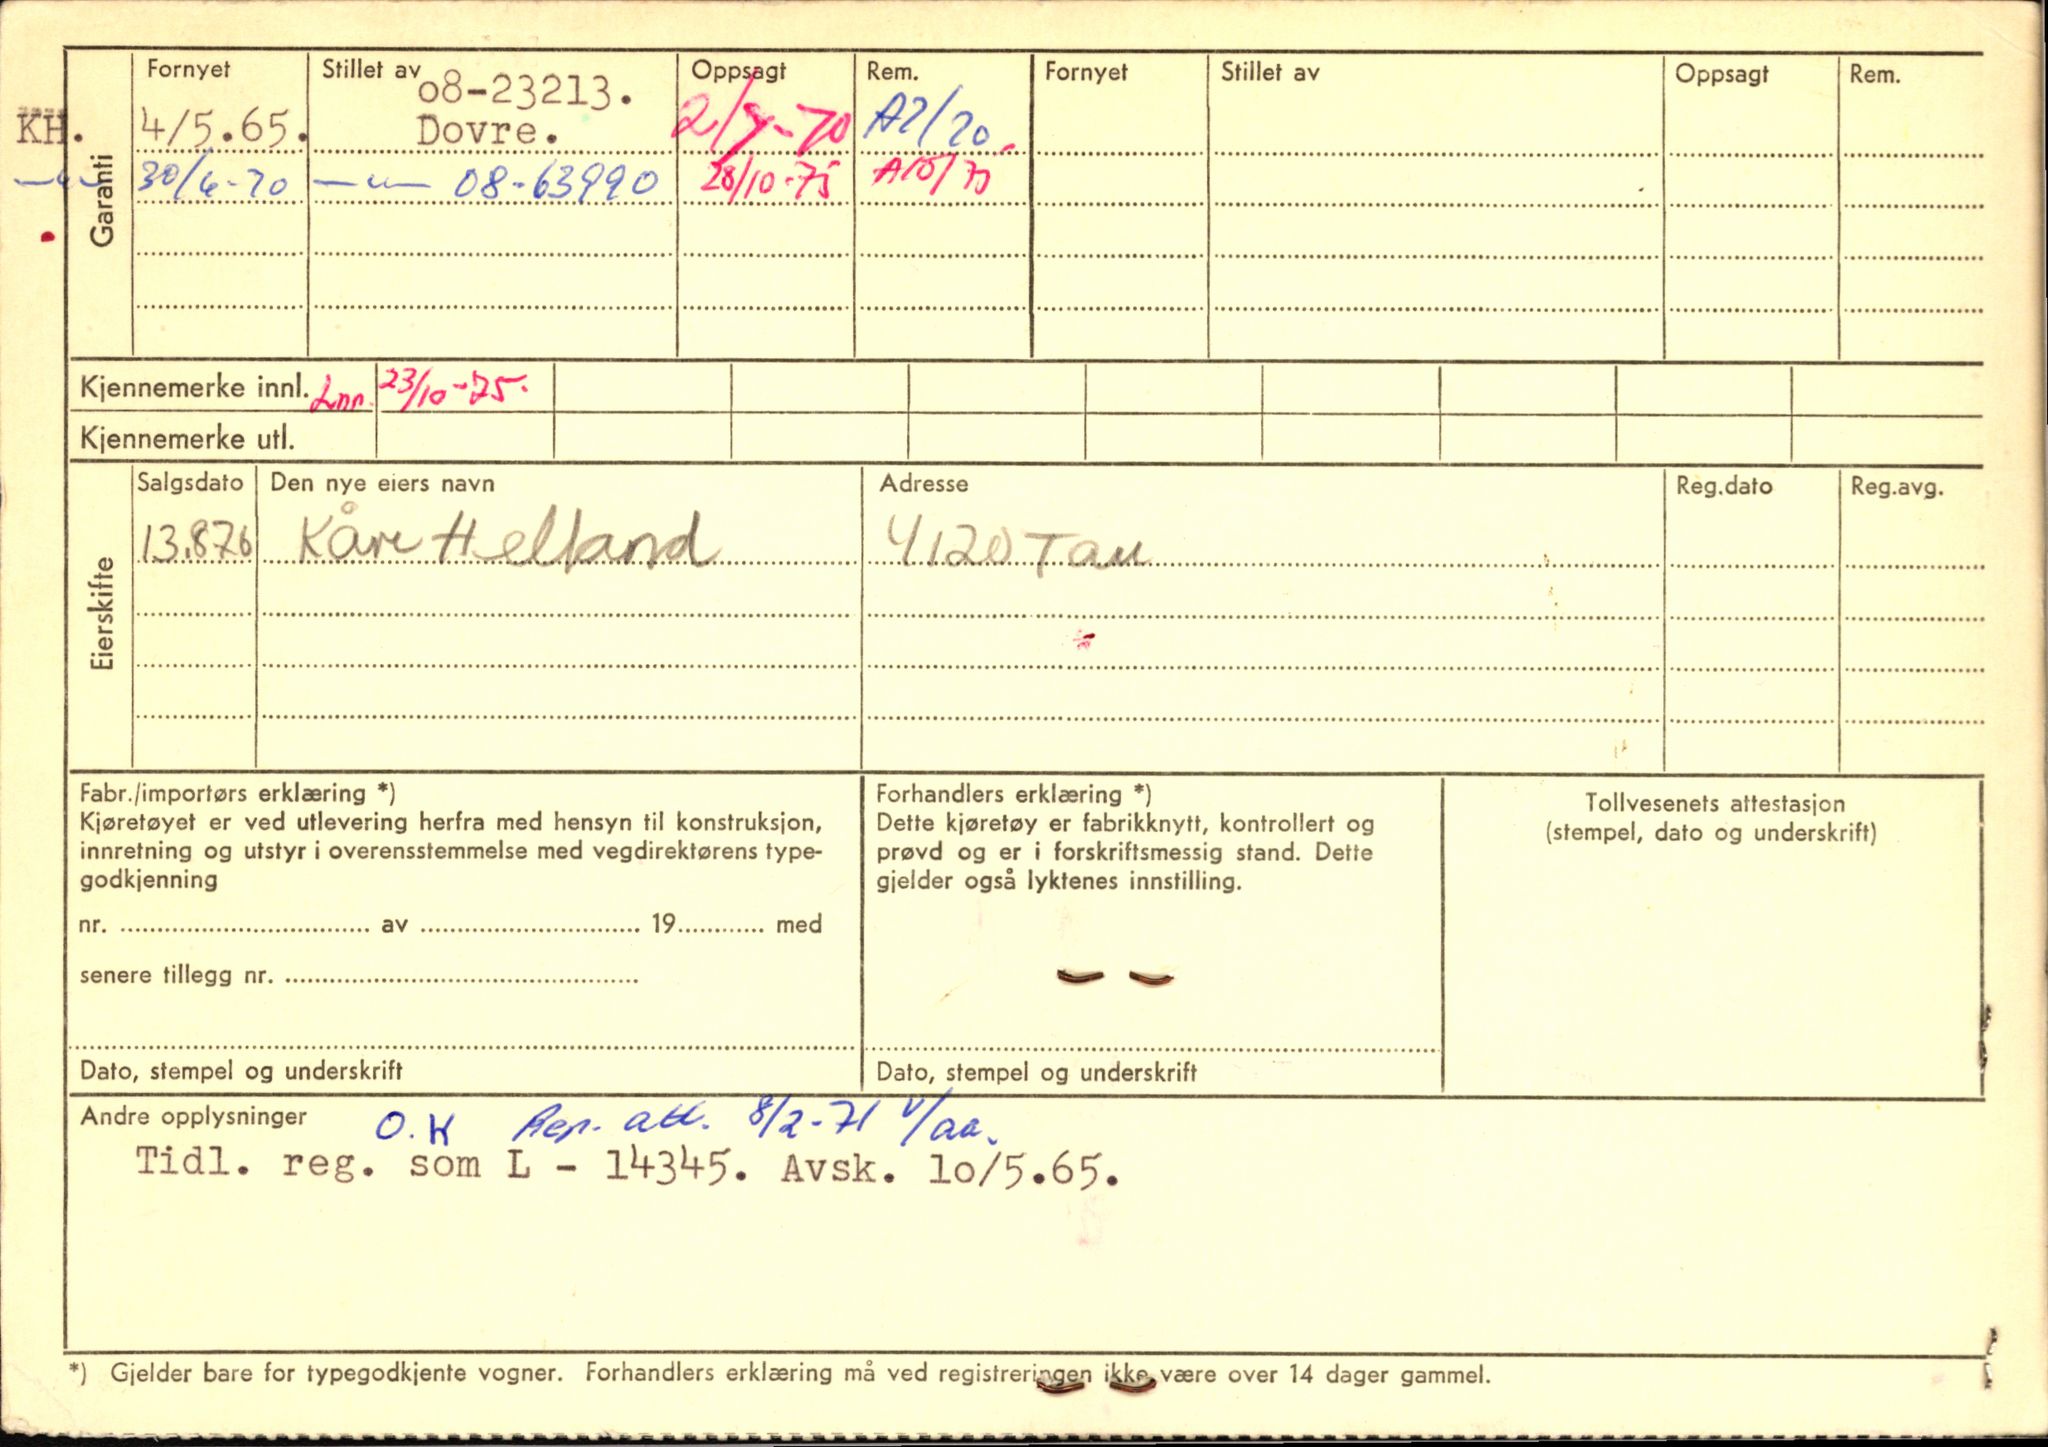 Fornyet Stillet av Oppsagt Rem. Fornyet Stillet av Oppsagt Rem.
o8-23213.
KH. 4/5.65. Dovre. 2/7-70 A7/70.
30/6-70 —"— 08-63990 28/10-75 A10/75
Garanti
Kjennemerke innl. Inn. 23/10-75.
Kjennemerke utl.
Eierskifte
Salgsdato Den nye eiers navn Adresse Reg.dato Reg.avg.
13.876 Kåre Helland 4120 Tau
Fabr./importørs erklæring *)
Kjøretøyet er ved utlevering herfra med hensyn til konstruksjon,
innretning og utstyr i overensstemmelse med vegdirektørens type-
godkjenning
nr. av 19 med
senere tillegg nr.
Dato, stempel og underskrift
Forhandlers erklæring *)
Dette kjøretøy er fabrikknytt, kontrollert og
prøvd og er i forskriftsmessig stand. Dette
gjelder også lyktenes innstilling.
Dato, stempel og underskrift
Tollvesenets attestasjon
(stempel, dato og underskrift)
Andre opplysninger O.K Rep. att. 8/2-71 v/aa.
Tidl. reg. som L - 14345. Avsk. lo/5.65.
*) Gjelder bare for typegodkjente vogner. Forhandlers erklæring må ved registreringen ikke være over 14 dager gammel.